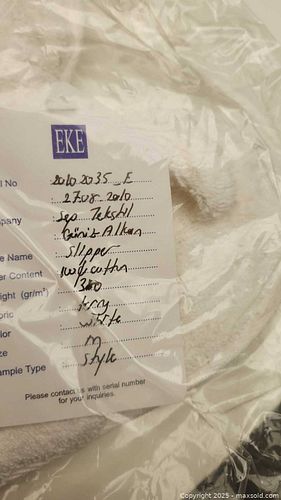 EKE
No 2010 2035_E
27.08.2010
pany Tekstil
e Name Slipper
er Content 100% cotton
ight (gr/m²) 380
bric terry
lor white
ze M
ample Type Style
Please contact us with serial number
for your inquiries.
Copyright © 2025 - maxsold.com